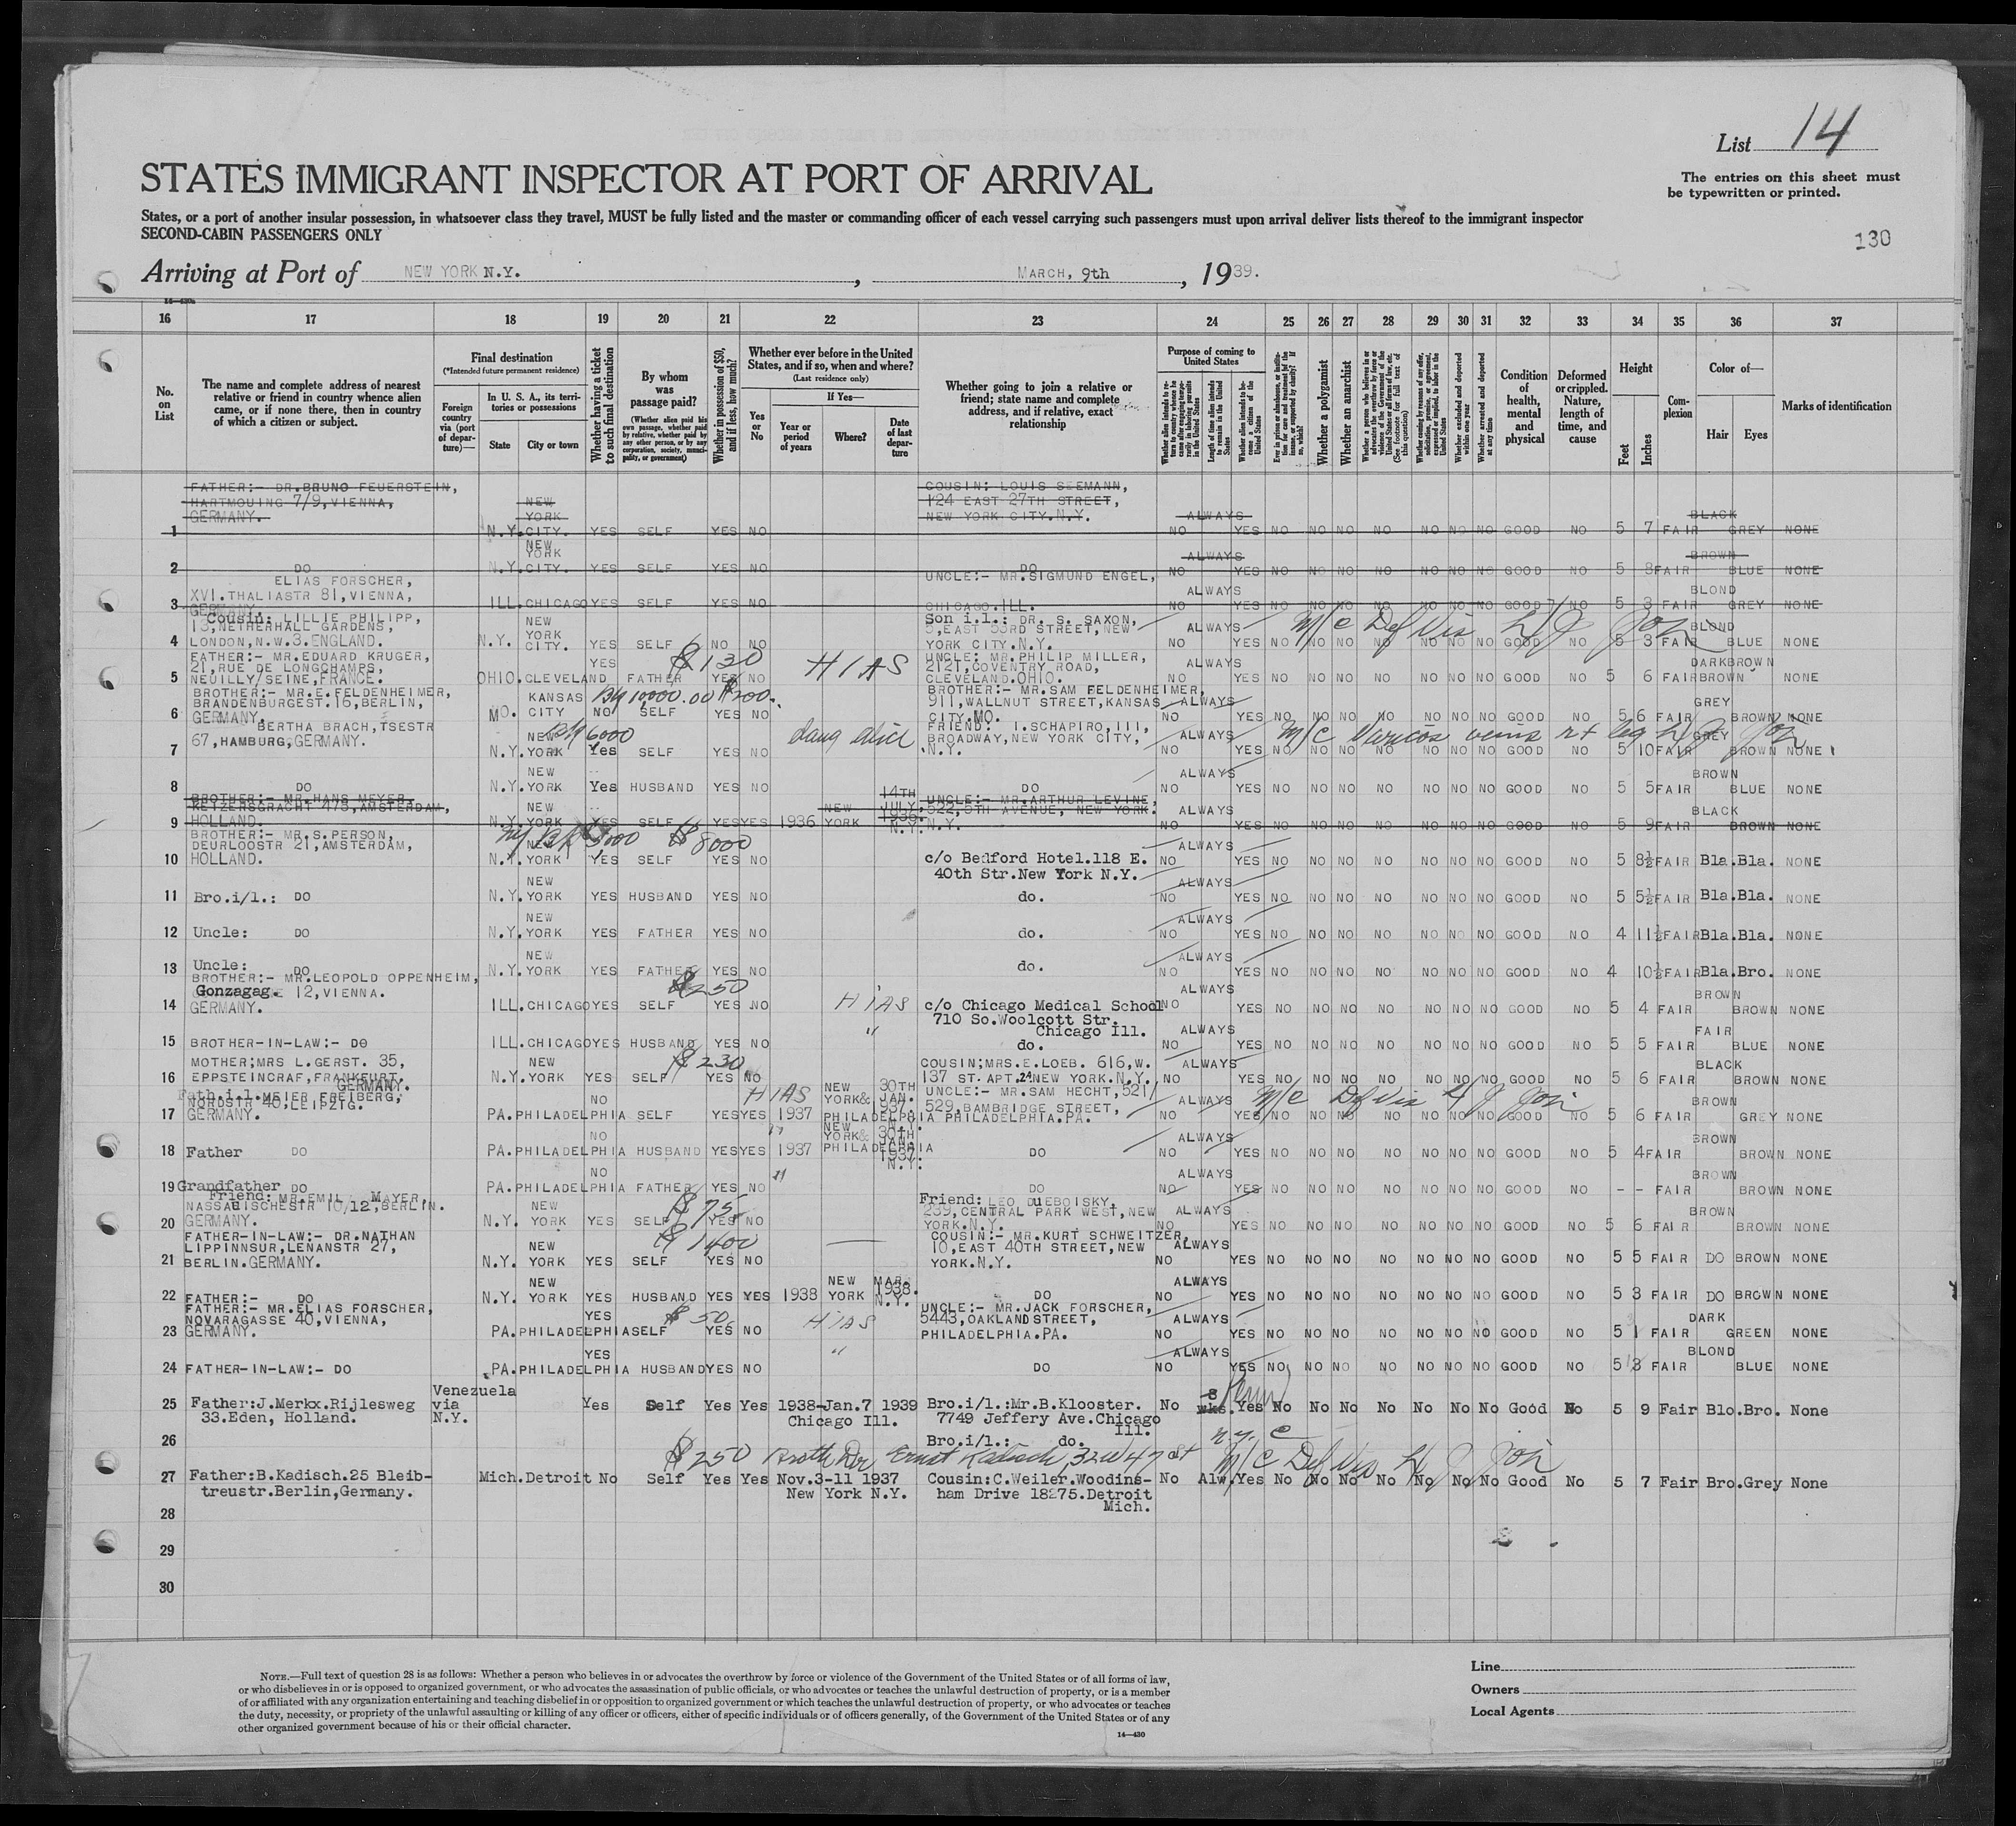 List 14
STATES IMMIGRANT INSPECTOR AT PORT OF ARRIVAL
The entries on this sheet must
be typewritten or printed.
States, or a port of another insular possession, in whatsoever class they travel, MUST be fully listed and the master or commanding officer of each vessel carrying such passengers must upon arrival deliver lists thereof to the immigrant inspector
SECOND-CABIN PASSENGERS ONLY
130
Arriving at Port of NEW YORK N.Y. , MARCH, 9th , 1939.
16 17 18 19 20 21 22 23 24 25 26 27 28 29 30 31 32 33 34 35 36 37
No. on List
The name and complete address of nearest relative or friend in country whence alien came, or if none there, then in country of which a citizen or subject.
Final destination
(*Intended future permanent residence)
Foreign country via (port of departure)—
In U. S. A., its territories or possessions
State City or town
Whether having a ticket to such final destination
By whom was passage paid?
(Whether alien paid his own passage, whether paid by relative, whether paid by any other person, or by any corporation, society, municipality, or government)
Whether in possession of $50, and if less, how much?
Whether ever before in the United States, and if so, when and where?
(Last residence only)
Yes or No
If Yes—
Year or period of years Where? Date of last departure
Whether going to join a relative or friend; state name and complete address, and if relative, exact relationship
Purpose of coming to United States
Whether a polygamist
Whether an anarchist
Condition of health, mental and physical
Deformed or crippled. Nature, length of time, and cause
Height
Feet Inches
Complexion
Color of—
Hair Eyes
Marks of identification
1 FATHER:- DR.BRUNO FEUERSTEIN, HARTMOUING 7/9,VIENNA, GERMANY. N.Y. NEW YORK CITY. YES SELF YES NO COUSIN: LOUIS SEEMANN, 124 EAST 27TH STREET, NEW YORK CITY.N.Y. NO ALWAYS YES NO NO NO NO NO NO NO GOOD NO 5 7 FAIR BLACK GREY NONE
2 DO N.Y. NEW YORK CITY. YES SELF YES NO DO NO ALWAYS YES NO NO NO NO NO NO NO GOOD NO 5 8 FAIR BROWN BLUE NONE
3 ELIAS FORSCHER, XVI.THALIASTR 81,VIENNA, GERMANY. ILL. CHICAGO YES SELF YES NO UNCLE:- MR.SIGMUND ENGEL, CHICAGO.ILL. NO ALWAYS YES NO NO NO NO NO NO NO GOOD NO 5 3 FAIR BLOND GREY NONE
4 Cousin: LILLIE PHILIPP, 13,NETHERHALL GARDENS, LONDON,N.W.3.ENGLAND. N.Y. NEW YORK CITY. YES SELF NO NO Son i.l.: DR. S. SAXON, 5,EAST 53RD STREET,NEW YORK CITY.N.Y. NO ALWAYS YES NO NO NO NO NO NO NO GOOD NO 5 3 FAIR BLOND BLUE NONE
M/c Def Vis
5 FATHER:- MR.EDUARD KRUGER, 21,RUE DE LONGCHAMPS, NEUILLY/SEINE,FRANCE. OHIO. CLEVELAND YES FATHER $130 YES NO HIAS UNCLE: MR.PHILIP MILLER, 2121,COVENTRY ROAD, CLEVELAND.OHIO. NO ALWAYS YES NO NO NO NO NO NO NO GOOD NO 5 6 FAIR DARKBROWN BROWN NONE
6 BROTHER:- MR.E.FELDENHEIMER, BRANDENBURGEST.16,BERLIN, GERMANY. MO. KANSAS CITY NO SELF 10,000.00 $200. YES NO BROTHER:- MR.SAM FELDENHEIMER, 911,WALNUT STREET,KANSAS CITY.MO. NO ALWAYS YES NO NO NO NO NO NO NO GOOD NO 5 6 FAIR GREY BROWN NONE
7 BERTHA BRACH,TSESTR 67,HAMBURG,GERMANY. N.Y. NEW YORK 6000 Yes SELF YES NO daug Alice FRIEND: I.SCHAPIRO,111, BROADWAY,NEW YORK CITY, N.Y. NO ALWAYS YES NO NO NO NO NO NO NO GOOD NO 5 10 FAIR GREY BROWN NONE
M/c Varicos veins rt leg
8 DO N.Y. NEW YORK Yes HUSBAND YES NO DO NO ALWAYS YES NO NO NO NO NO NO NO GOOD NO 5 5 FAIR BROWN BLUE NONE
9 BROTHER:- MR.HANS MEYER, KEIZERSGRACHT 475,AMSTERDAM, HOLLAND. N.Y. NEW YORK YES SELF YES YES 1936 NEW YORK 14TH JULY, 1936. N.Y. UNCLE:- MR.ARTHUR LEVINE, 522,5TH AVENUE, NEW YORK. N.Y. NO ALWAYS YES NO NO NO NO NO NO NO GOOD NO 5 9 FAIR BLACK BROWN NONE
10 BROTHER:- MR.S.PERSON, DEURLOOSTR 21,AMSTERDAM, HOLLAND. N.Y. NEW YORK YES SELF $8000 YES NO c/o Bedford Hotel.118 E. 40th Str.New York N.Y. NO ALWAYS YES NO NO NO NO NO NO NO GOOD NO 5 8½ FAIR Bla.Bla. NONE
11 Bro.i/l.: DO N.Y. NEW YORK YES HUSBAND YES NO do. NO ALWAYS YES NO NO NO NO NO NO NO GOOD NO 5 5½ FAIR Bla.Bla. NONE
12 Uncle: DO N.Y. NEW YORK YES FATHER YES NO do. NO ALWAYS YES NO NO NO NO NO NO NO GOOD NO 4 11½ FAIR Bla.Bla. NONE
13 Uncle: DO N.Y. NEW YORK YES FATHER YES NO do. NO ALWAYS YES NO NO NO NO NO NO NO GOOD NO 4 10½ FAIR Bla.Bro. NONE
14 BROTHER:- MR.LEOPOLD OPPENHEIM, Gonzagag. 12,VIENNA. GERMANY. ILL. CHICAGO YES SELF $250 YES NO HIAS c/o Chicago Medical School 710 So.Woolcott Str. Chicago Ill. NO ALWAYS YES NO NO NO NO NO NO NO GOOD NO 5 4 FAIR BROWN BROWN NONE
15 BROTHER-IN-LAW:- DO ILL. CHICAGO YES HUSBAND YES NO " do. NO ALWAYS YES NO NO NO NO NO NO NO GOOD NO 5 5 FAIR FAIR BLUE NONE
16 MOTHER;MRS L.GERST. 35, EPPSTEINGRAF,FRANKFURT. GERMANY. N.Y. NEW YORK YES SELF $230 YES NO HIAS COUSIN;MRS.E.LOEB. 616,W. 137 ST.APT.24 NEW YORK.N.Y. NO ALWAYS YES NO NO NO NO NO NO NO GOOD NO 5 6 FAIR BLACK BROWN NONE
17 Fath.i.l.MEIER FREIBERG, NORDSTR 40,LEIPZIG. GERMANY. PA. PHILADELPHIA NO SELF YES YES 1937 NEW YORK& PHILADELPHIA 30TH JAN. 1937. N.Y. UNCLE:- MR.SAM HECHT,5211 529,BAMBRIDGE STREET, PHILADELPHIA.PA. NO ALWAYS YES NO NO NO NO NO NO NO GOOD NO 5 6 FAIR BROWN GREY NONE
M/c Def Vis
18 Father DO PA. PHILADELPHIA NO HUSBAND YES YES 1937 NEW YORK& PHILADELPHIA 30TH JAN. 1937. N.Y. DO NO ALWAYS YES NO NO NO NO NO NO NO GOOD NO 5 4 FAIR BROWN BROWN NONE
19 Grandfather DO PA. PHILADELPHIA NO FATHER YES NO " DO NO ALWAYS YES NO NO NO NO NO NO NO GOOD NO - - FAIR BROWN BROWN NONE
20 Friend: MR.EMIL MAYER, NASSAUISCHESTR 10/12,BERLIN. GERMANY. N.Y. NEW YORK YES SELF $75 YES NO Friend: LEO DUEBOISKY, 239,CENTRAL PARK WEST,NEW YORK.N.Y. NO ALWAYS YES NO NO NO NO NO NO NO GOOD NO 5 6 FAIR BROWN BROWN NONE
21 FATHER-IN-LAW:- DR.NATHAN LIPPINNSUR,LENANSTR 27, BERLIN.GERMANY. N.Y. NEW YORK YES SELF $1400 YES NO COUSIN:- MR.KURT SCHWEITZER, 10,EAST 40TH STREET,NEW YORK.N.Y. NO ALWAYS YES NO NO NO NO NO NO NO GOOD NO 5 5 FAIR DO BROWN NONE
22 FATHER:- DO N.Y. NEW YORK YES HUSBAND YES YES 1938 NEW YORK MAR. 1938. N.Y. DO NO ALWAYS YES NO NO NO NO NO NO NO GOOD NO 5 3 FAIR DO BROWN NONE
23 FATHER:- MR.ELIAS FORSCHER, NOVARAGASSE 40,VIENNA, GERMANY. PA. PHILADELPHIA YES SELF $50 YES NO HIAS UNCLE:- MR.JACK FORSCHER, 5443,OAKLANDSTREET, PHILADELPHIA.PA. NO ALWAYS YES NO NO NO NO NO NO NO GOOD NO 5 1 FAIR DARK GREEN NONE
24 FATHER-IN-LAW:- DO PA. PHILADELPHIA YES HUSBAND YES NO " DO NO ALWAYS YES NO NO NO NO NO NO NO GOOD NO 5 3 FAIR BLOND BLUE NONE
25 Father:J.Merkx.Rijlesweg 33.Eden, Holland. Venezuela via N.Y. Yes Self Yes Yes 1938-Jan.7 1939 Chicago Ill. Bro.i/l.:Mr.B.Klooster. 7749 Jeffery Ave.Chicago Ill. No 8 wks. Perm Yes No No No No No No No Good No 5 9 Fair Blo.Bro. None
26 Bro.i/l.: do.
$250 Broth Ernst Kadisch, 32 W 47 St N.Y.C M/c Def Vis
27 Father:B.Kadisch.25 Bleibtreustr.Berlin,Germany. Mich. Detroit No Self Yes Yes Nov.3-11 1937 New York N.Y. Cousin:C.Weiler.Woodinsham Drive 18275.Detroit Mich. No Alw. Yes No No No No No No No Good No 5 7 Fair Bro.Grey None
28
29
30
NOTE.—Full text of question 28 is as follows: Whether a person who believes in or advocates the overthrow by force or violence of the Government of the United States or of all forms of law,
or who disbelieves in or is opposed to organized government, or who advocates the assassination of public officials, or who advocates or teaches the unlawful destruction of property, or is a member
of or affiliated with any organization entertaining and teaching disbelief in or opposition to organized government or which teaches the unlawful destruction of property, or who advocates or teaches
the duty, necessity, or propriety of the unlawful assaulting or killing of any officer or officers, either of specific individuals or of officers generally, of the Government of the United States or of any
other organized government because of his or their official character.
14—430
Line
Owners
Local Agents